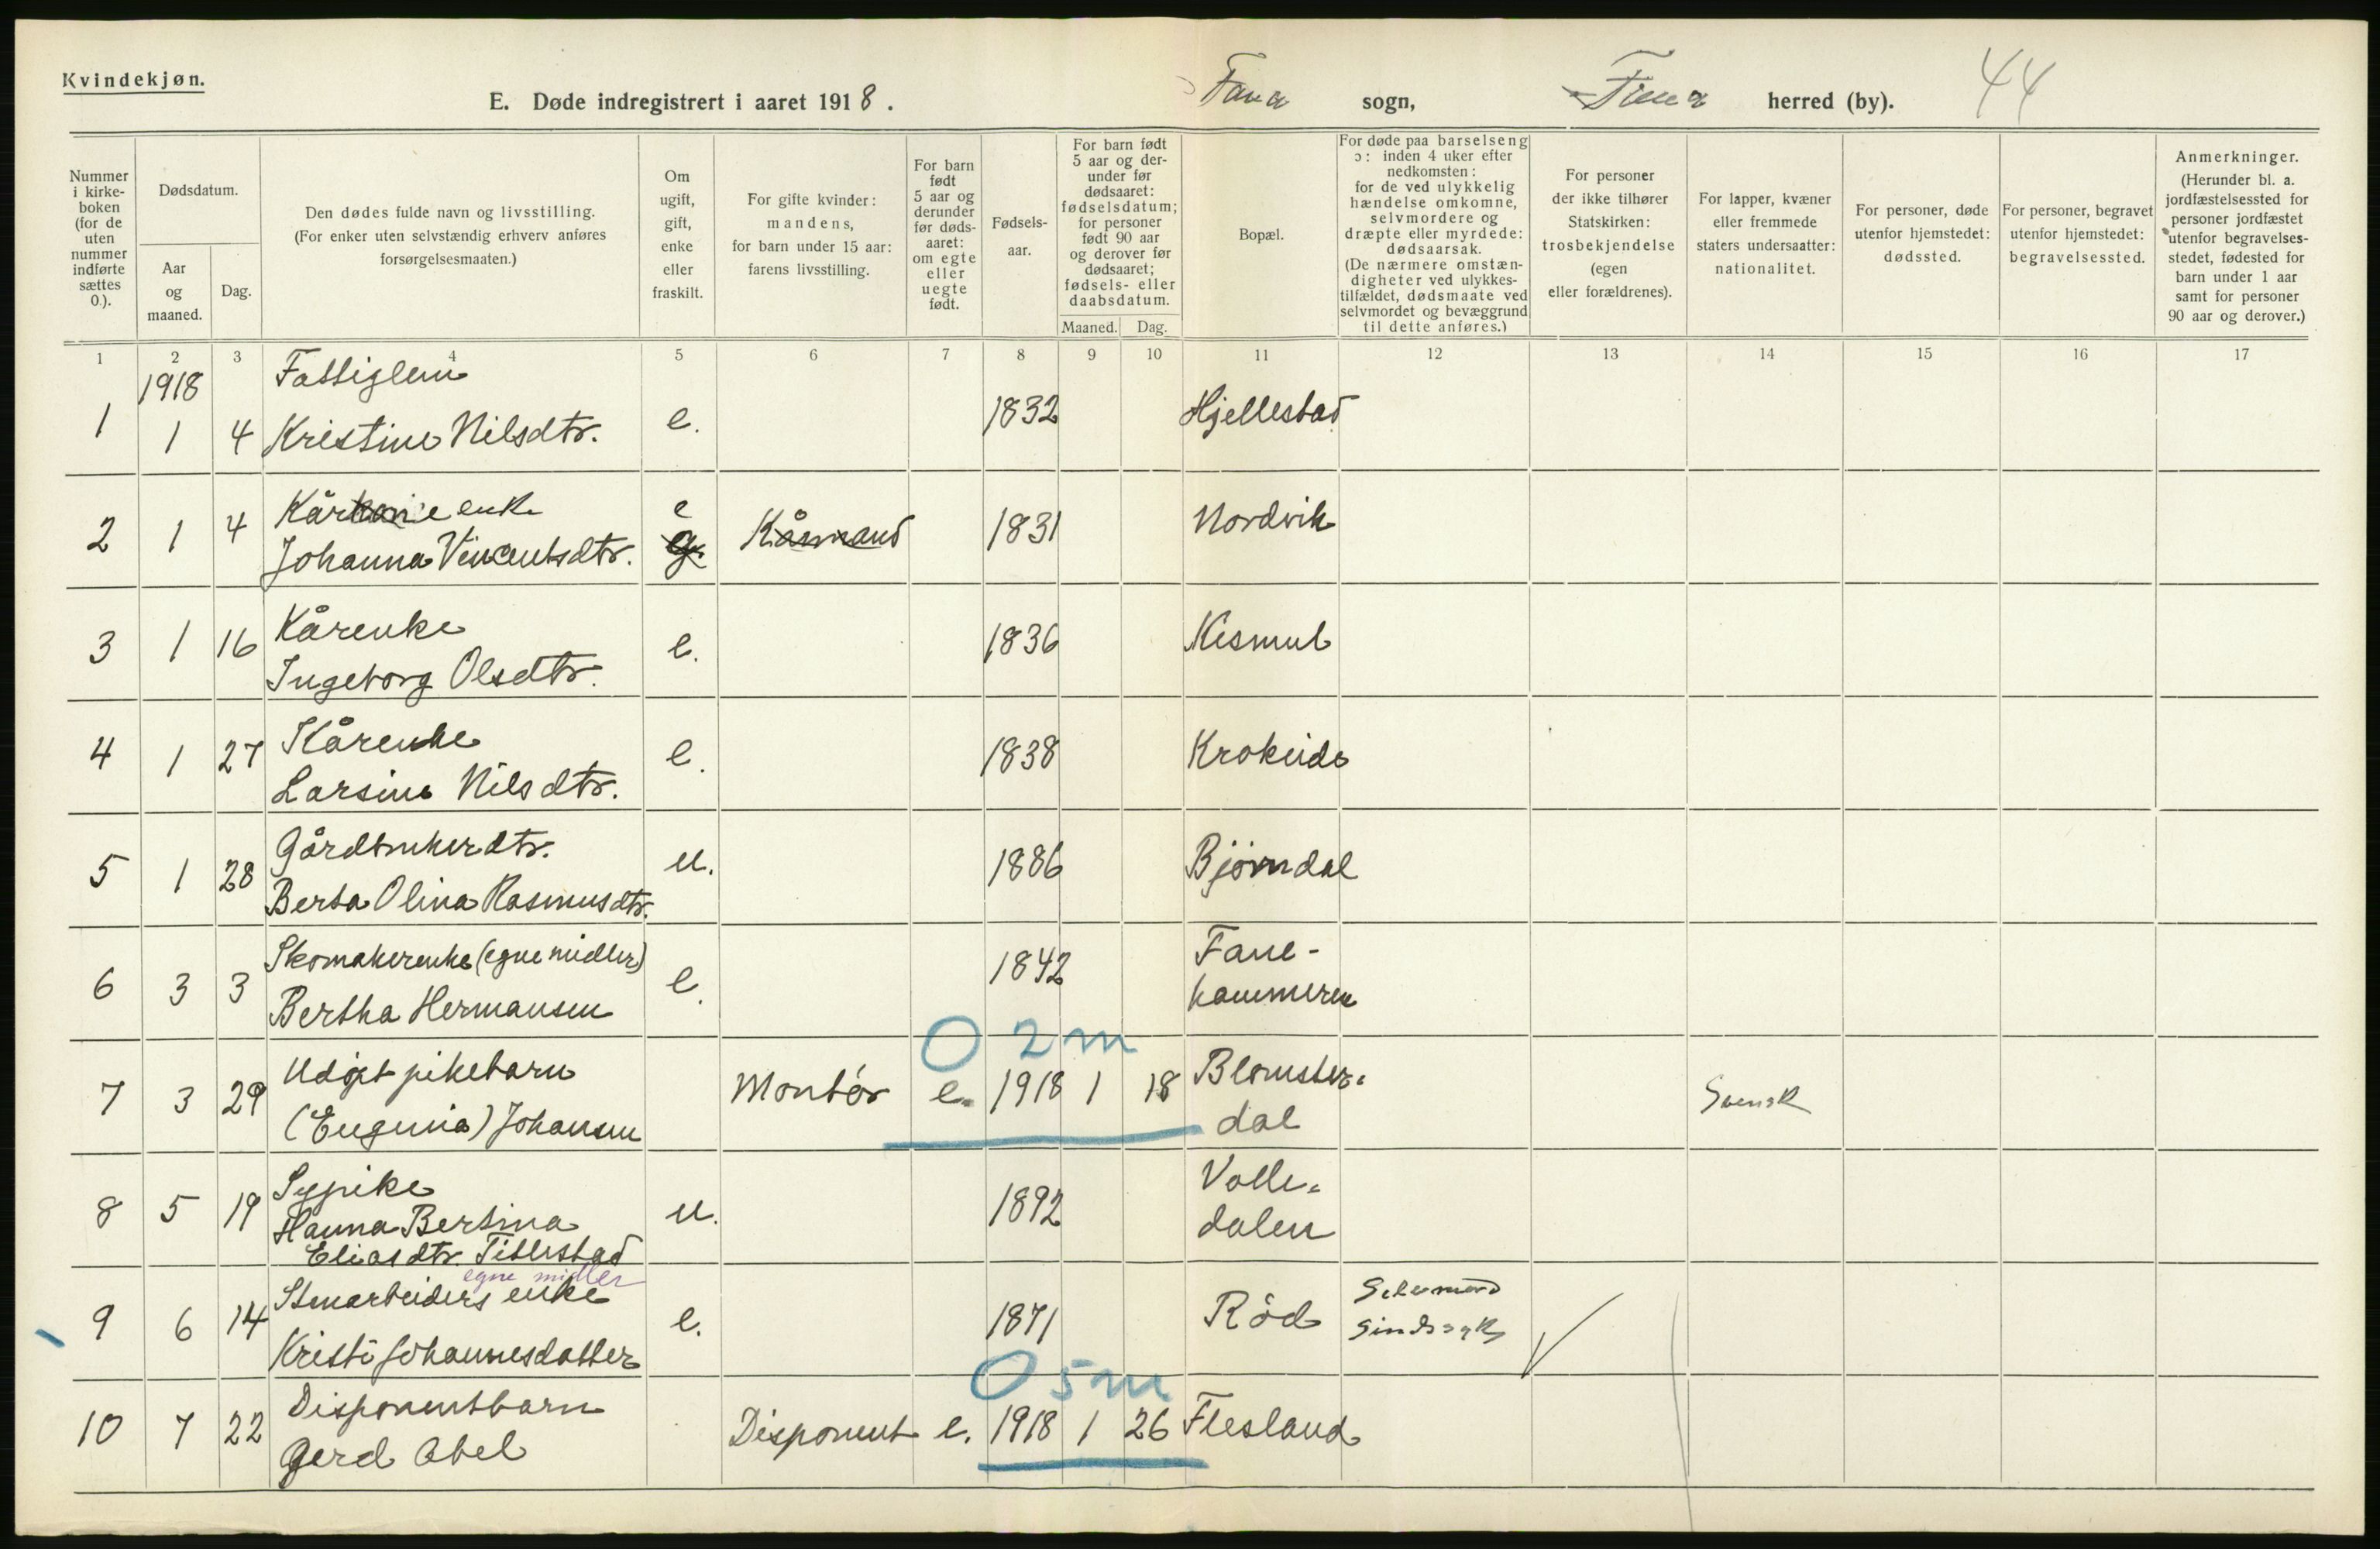 Kvindekjøn.
E. Døde indregistrert i aaret 1918. Fana sogn, Fana herred (by). 44
Nummer i kirke-boken (for de uten nummer indførte sættes 0.).
Dødsdatum.
Aar og maaned.
Dag.
Den dødes fulde navn og livsstilling.
(For enker uten selvstændig erhverv anføres forsørgelsesmaaten.)
Om ugift, gift, enke eller fraskilt.
For gifte kvinder: mandens, for barn under 15 aar: farens livsstilling.
For barn født 5 aar og derunder før døds-aaret: om egte eller uegte født.
Fødsels-aar.
For barn født 5 aar og der-under før dødsaaret: fødselsdatum; for personer født 90 aar og derover før dødsaaret; fødsels- eller daabsdatum.
Maaned. Dag.
Bopæl.
For døde paa barselseng ɔ: inden 4 uker efter nedkomsten: for de ved ulykkelig hændelse omkomne, selvmordere og dræpte eller myrdede: dødsaarsak. (De nærmere omstæn-digheter ved ulykkes-tilfældet, dødsmaate ved selvmordet og bevæggrund til dette anføres.)
For personer der ikke tilhører Statskirken: trosbekjendelse (egen eller forældrenes).
For lapper, kvæner eller fremmede staters undersaatter: nationalitet.
For personer, døde utenfor hjemstedet: dødssted.
For personer, begravet utenfor hjemstedet: begravelsessted.
Anmerkninger. (Herunder bl. a. jordfæstelsessted for personer jordfæstet utenfor begravelses-stedet, fødested for barn under 1 aar samt for personer 90 aar og derover.)
1 2 3 4 5 6 7 8 9 10 11 12 13 14 15 16 17
1918 Fattiglem
1 1 4 Kristine Nilsdtr. e. 1832 Hjellestad
Kårkone enke e
2 1 4 Johanna Vincentsdtr. g. Kåmand 1831 Nordvik
Kårenke
3 1 16 Ingeborg Olsdtr. e. 1836 Kismul
Kårenke
4 1 27 Larsine Nilsdtr. e. 1838 Krokeide
Gårdbrukerdtr.
5 1 28 Berta Olina Rasmusdtr. u. 1886 Bjørndal
Skomakerenke (egne midler) Fane-
6 3 3 Bertha Hermansen e. 1842 hammeren
0 2 m
Udøpt pikebarn Blomster-
7 3 29 (Eugenia) Johansen Montør e. 1918 1 18 dal Svensk
Sypike Valle-
8 5 19 Hanna Bertina u. 1892 dalen
Eliasdtr. Titlestad
egne midler
Stenarbeiders enke Selvmord
9 6 14 Kristi Johannesdatter e. 1871 Råd Sindssyk
0 5 m
Disponentbarn
10 7 22 Gerd Abel Disponent e. 1918 1 26 Flesland